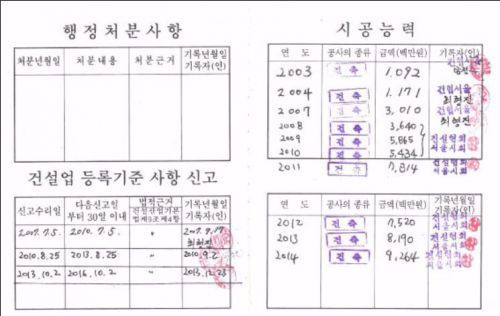 행정처분사항
처분년월일 처분내용 처분근거 기록년월일
기록자(인)
건설업 등록기준 사항 신고
신고수리일 다음신고일
부터 30일 이내 법적근거 기록년월일
기록자(인)
2007.7.5. 2010.7.5. 〃 2007.9.17
최형진
2010.8.25 2013.8.25 〃 2010.9.2
2013.10.2 2016.10.2 〃 2013.12.23
시공능력
연도 공사의 종류 금액(백만원) 기록자(인)
2003 건축 1,092
2004 건축 1,171 건협서울
최형진
2007 건축 3,010 건협서울
최형진
2008 건축 3,640
2009 건축 5,865 건설협회
2010 건축 5,434 서울시회
2011 건축 7,814 건설협회
서울시회
연도 공사의 종류 금액(백만원) 기록년월일
기록자(인)
2012 건축 7,520 건설협회
서울시회
2013 건축 8,190 건설협회
서울시회
2014 건축 9,264 건설협회
서울시회